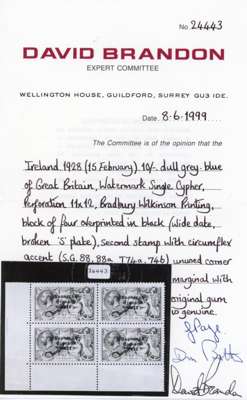 No 24443
DAVID BRANDON
EXPERT COMMITTEE
WELLINGTON HOUSE, GUILDFORD, SURREY GU3 1DE.
Date. 8.6.1999
The Committee is of the opinion that the
Ireland 1928 (15 February) 10/- dull grey-blue
of Great Britain, Watermark Single Cypher,
Perforation 11x12, Bradbury Wilkinson Printing,
block of four overprinted in black (wide date,
broken 'S' plate), second stamp with circumflex
accent (S.G. 88, 88a T74a, 74b) unused corner
marginal with
original gum
is genuine.
24443
David Brandon